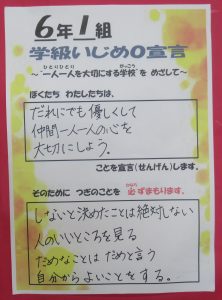 6年1組
学級いじめ0宣言
ひとりひとり がっこう
～“一人一人を大切にする学校”を めざして～
ぼくたち わたしたちは、
だれにでも優しくして
仲間一人一人の心を
大切にしよう。
ことを宣言(せんげん)します。
そのために つぎのことを 必ずまもります。
しないと決めたことは絶対しない
人のいいところを見る
だめなことは だめと言う
自分からよいことをする。